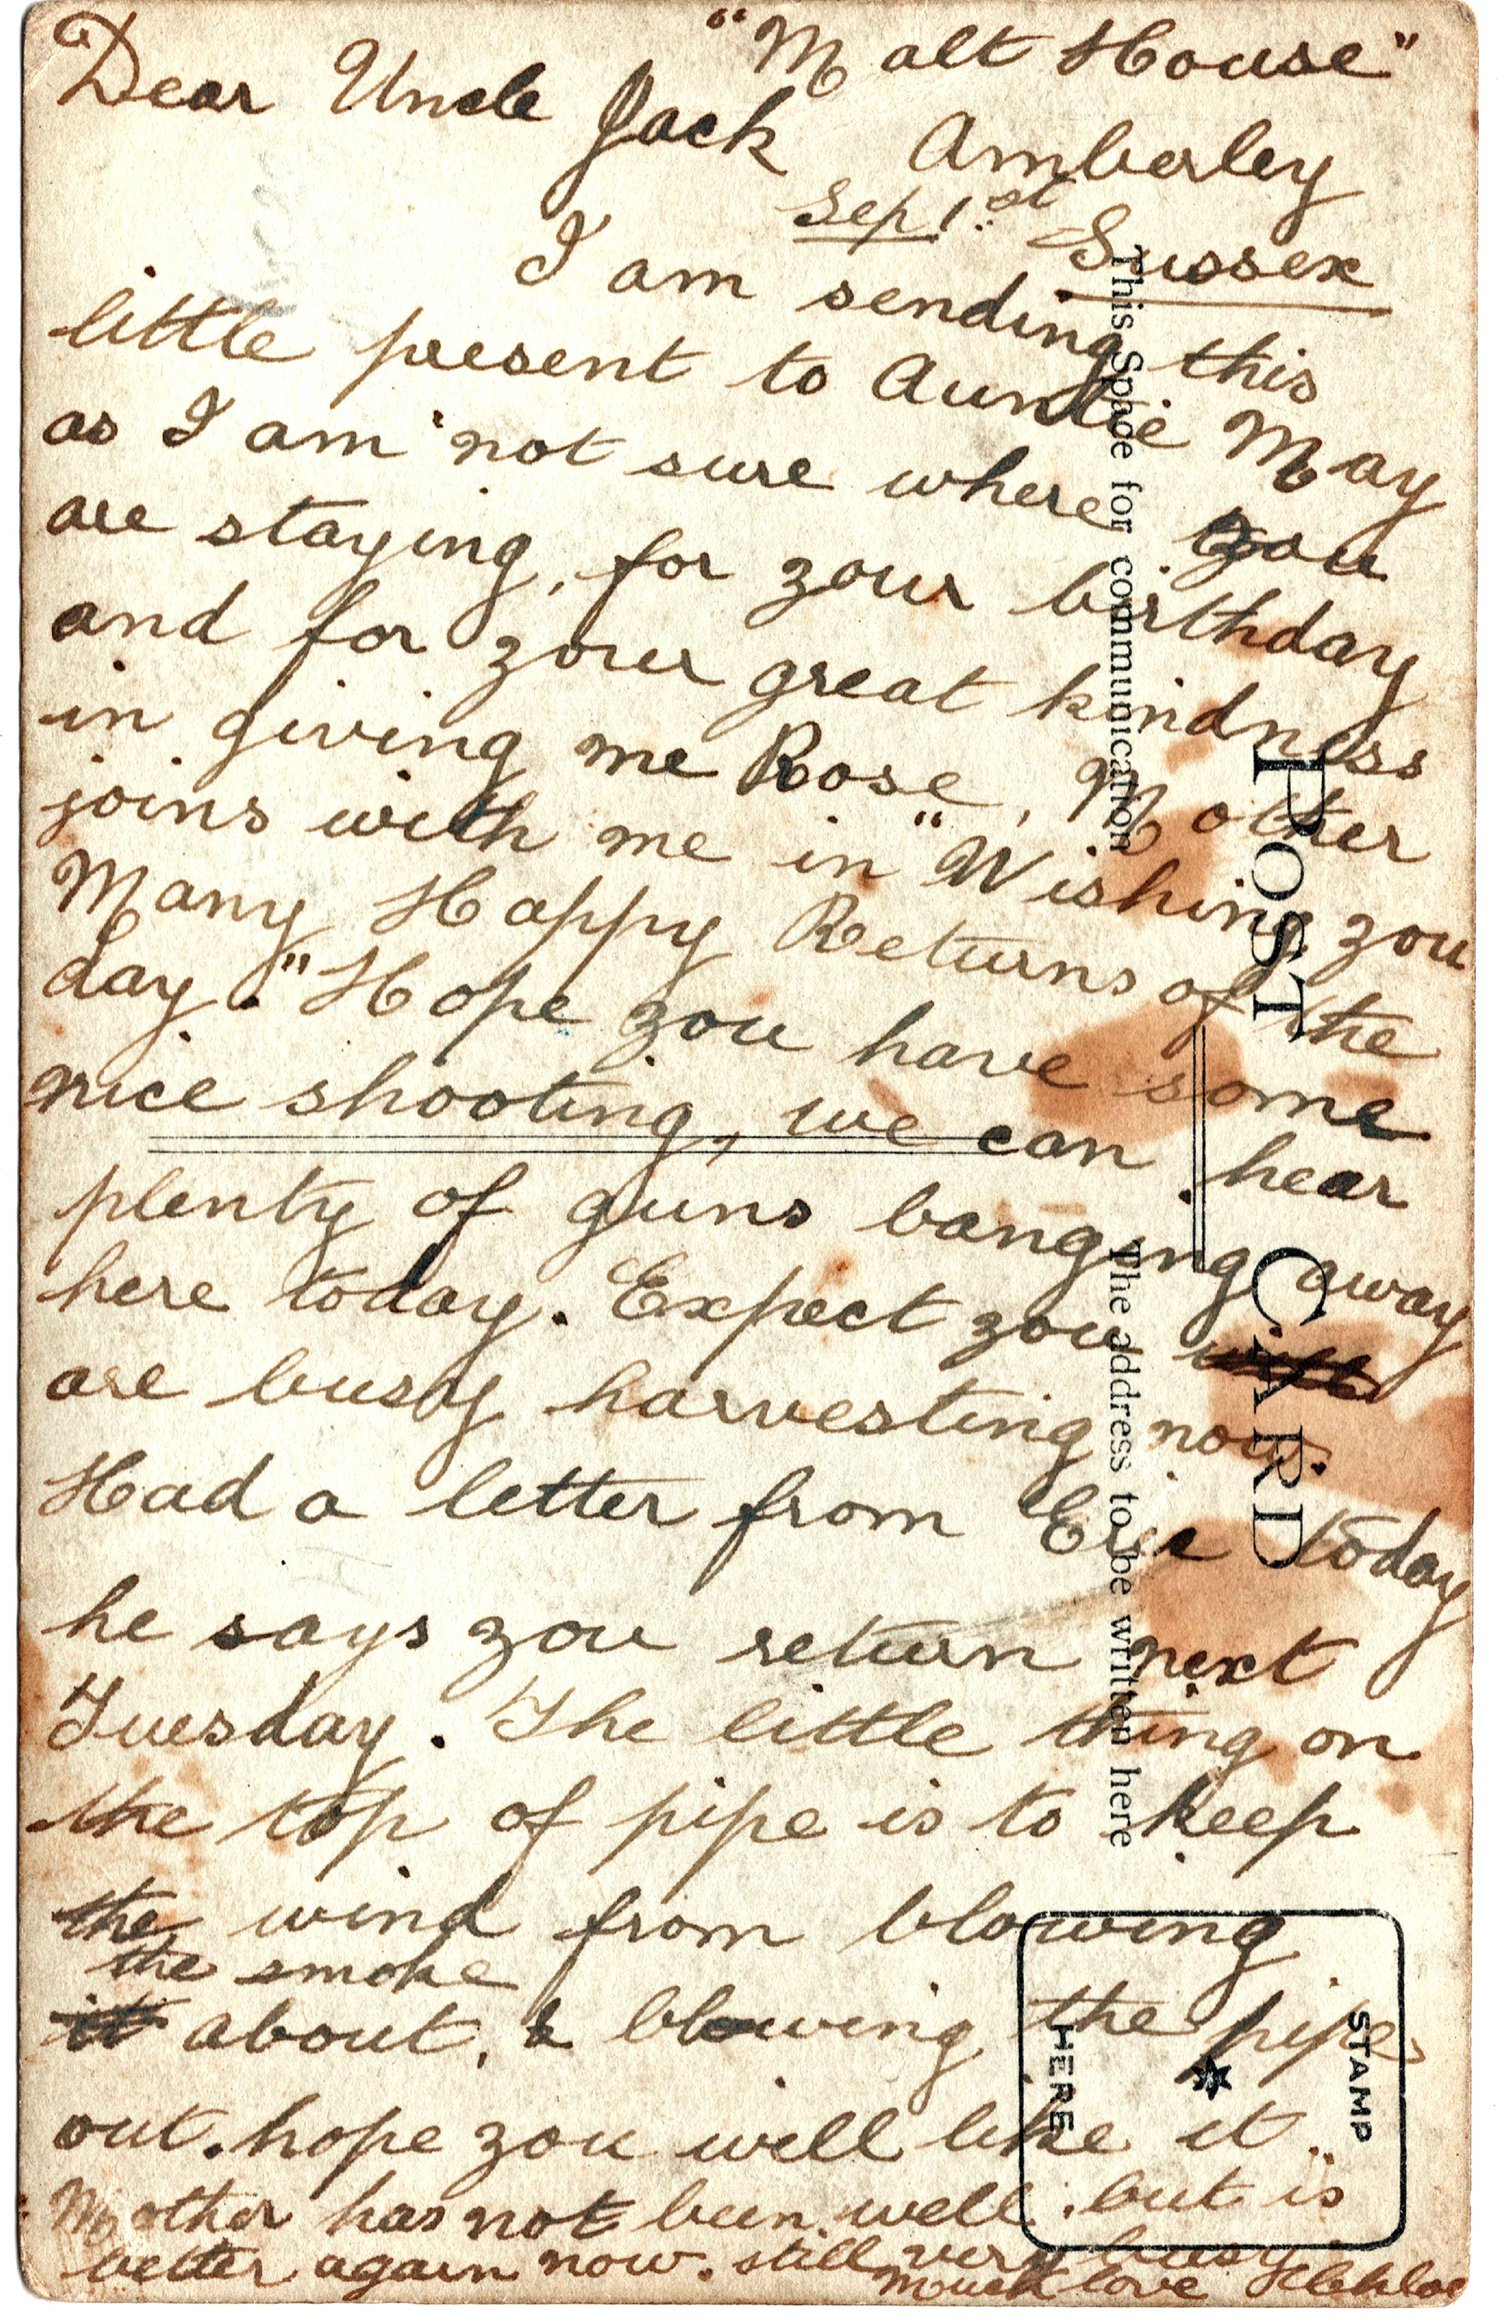 "Malt House"
Dear Uncle Jack Amberley
Sep 1.st Sussex
I am sending this
little present to Auntie May
as I am not sure where you
are staying, for your birthday
and for your great kindness
in giving me Rose, Mother
joins with me in "Wishing you
Many Happy Returns of the
day." Hope you have some
nice shooting, we can hear
plenty of guns banging away
here today. Expect you will
are busy harvesting now.
Had a letter from Eric today
he says you return next
Tuesday. The little thing on
the top of pipe is to keep
the wind from blowing
the smoke
it about, & blowing the pipe
out. hope you will like it.
Mother has not been well. but is
better again now. still very busy
much love
This Space for communication
POST CARD
The address to be written here
STAMP
HERE